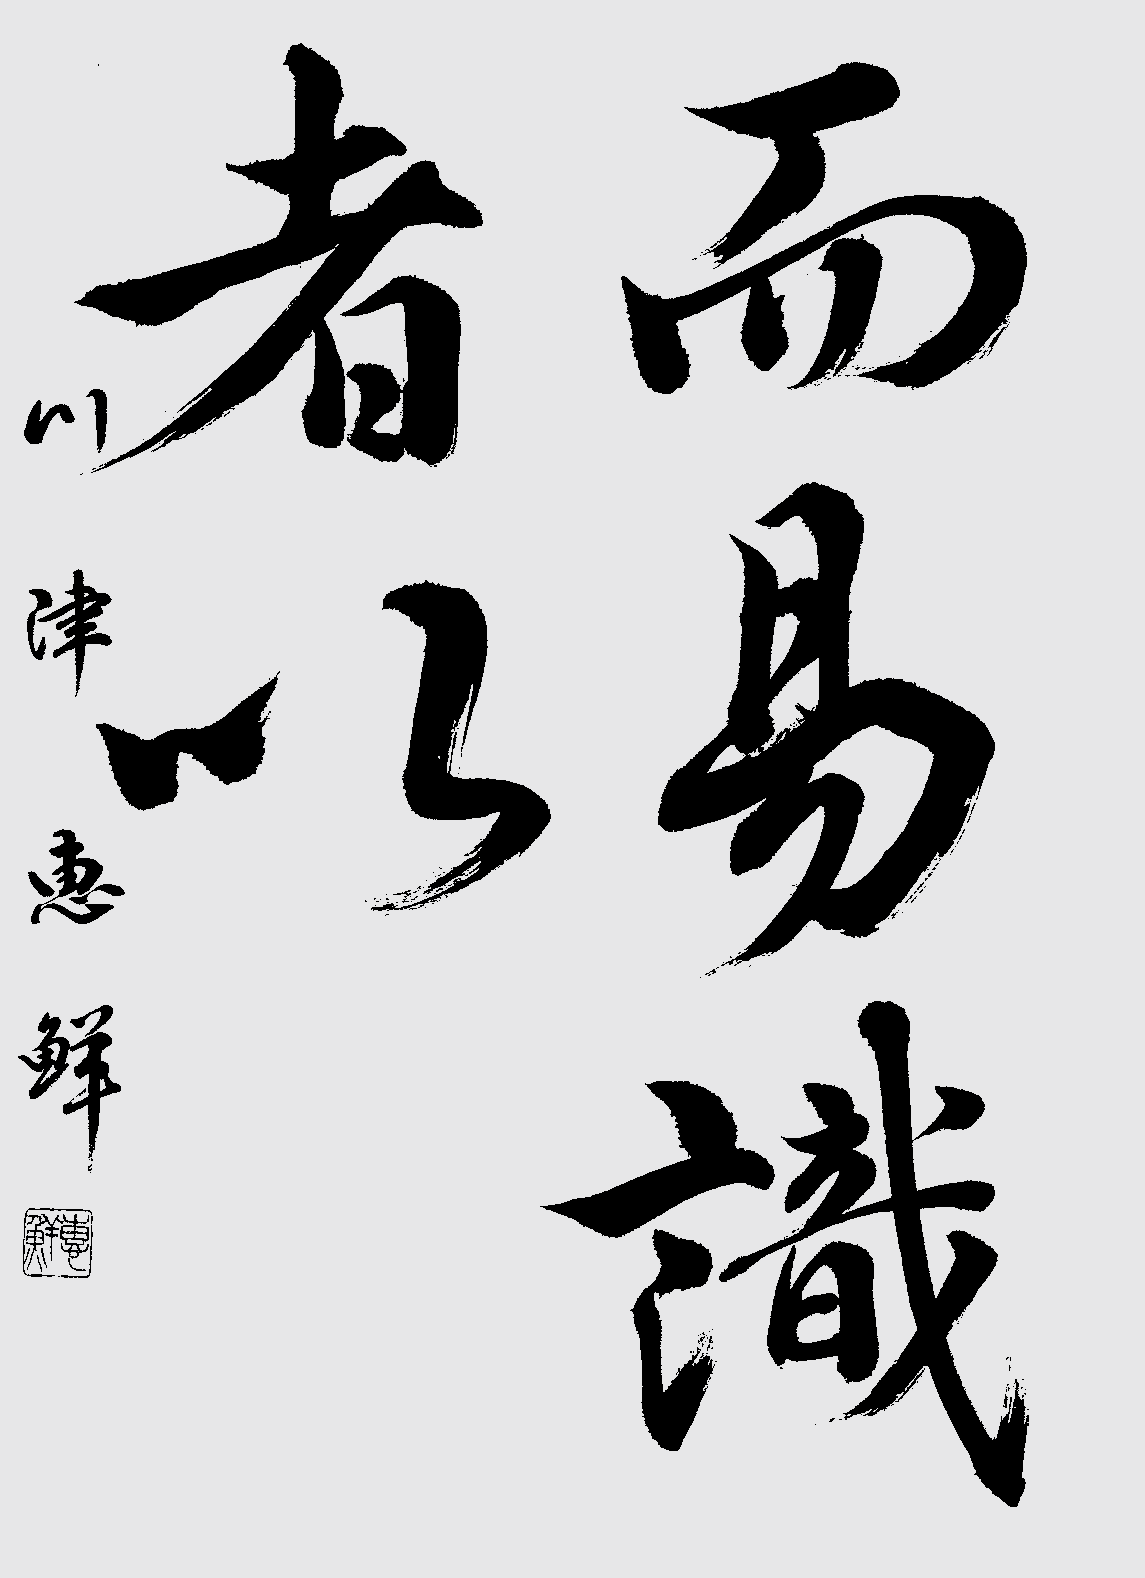 而易識
者以
川津惠鮮
惠鮮